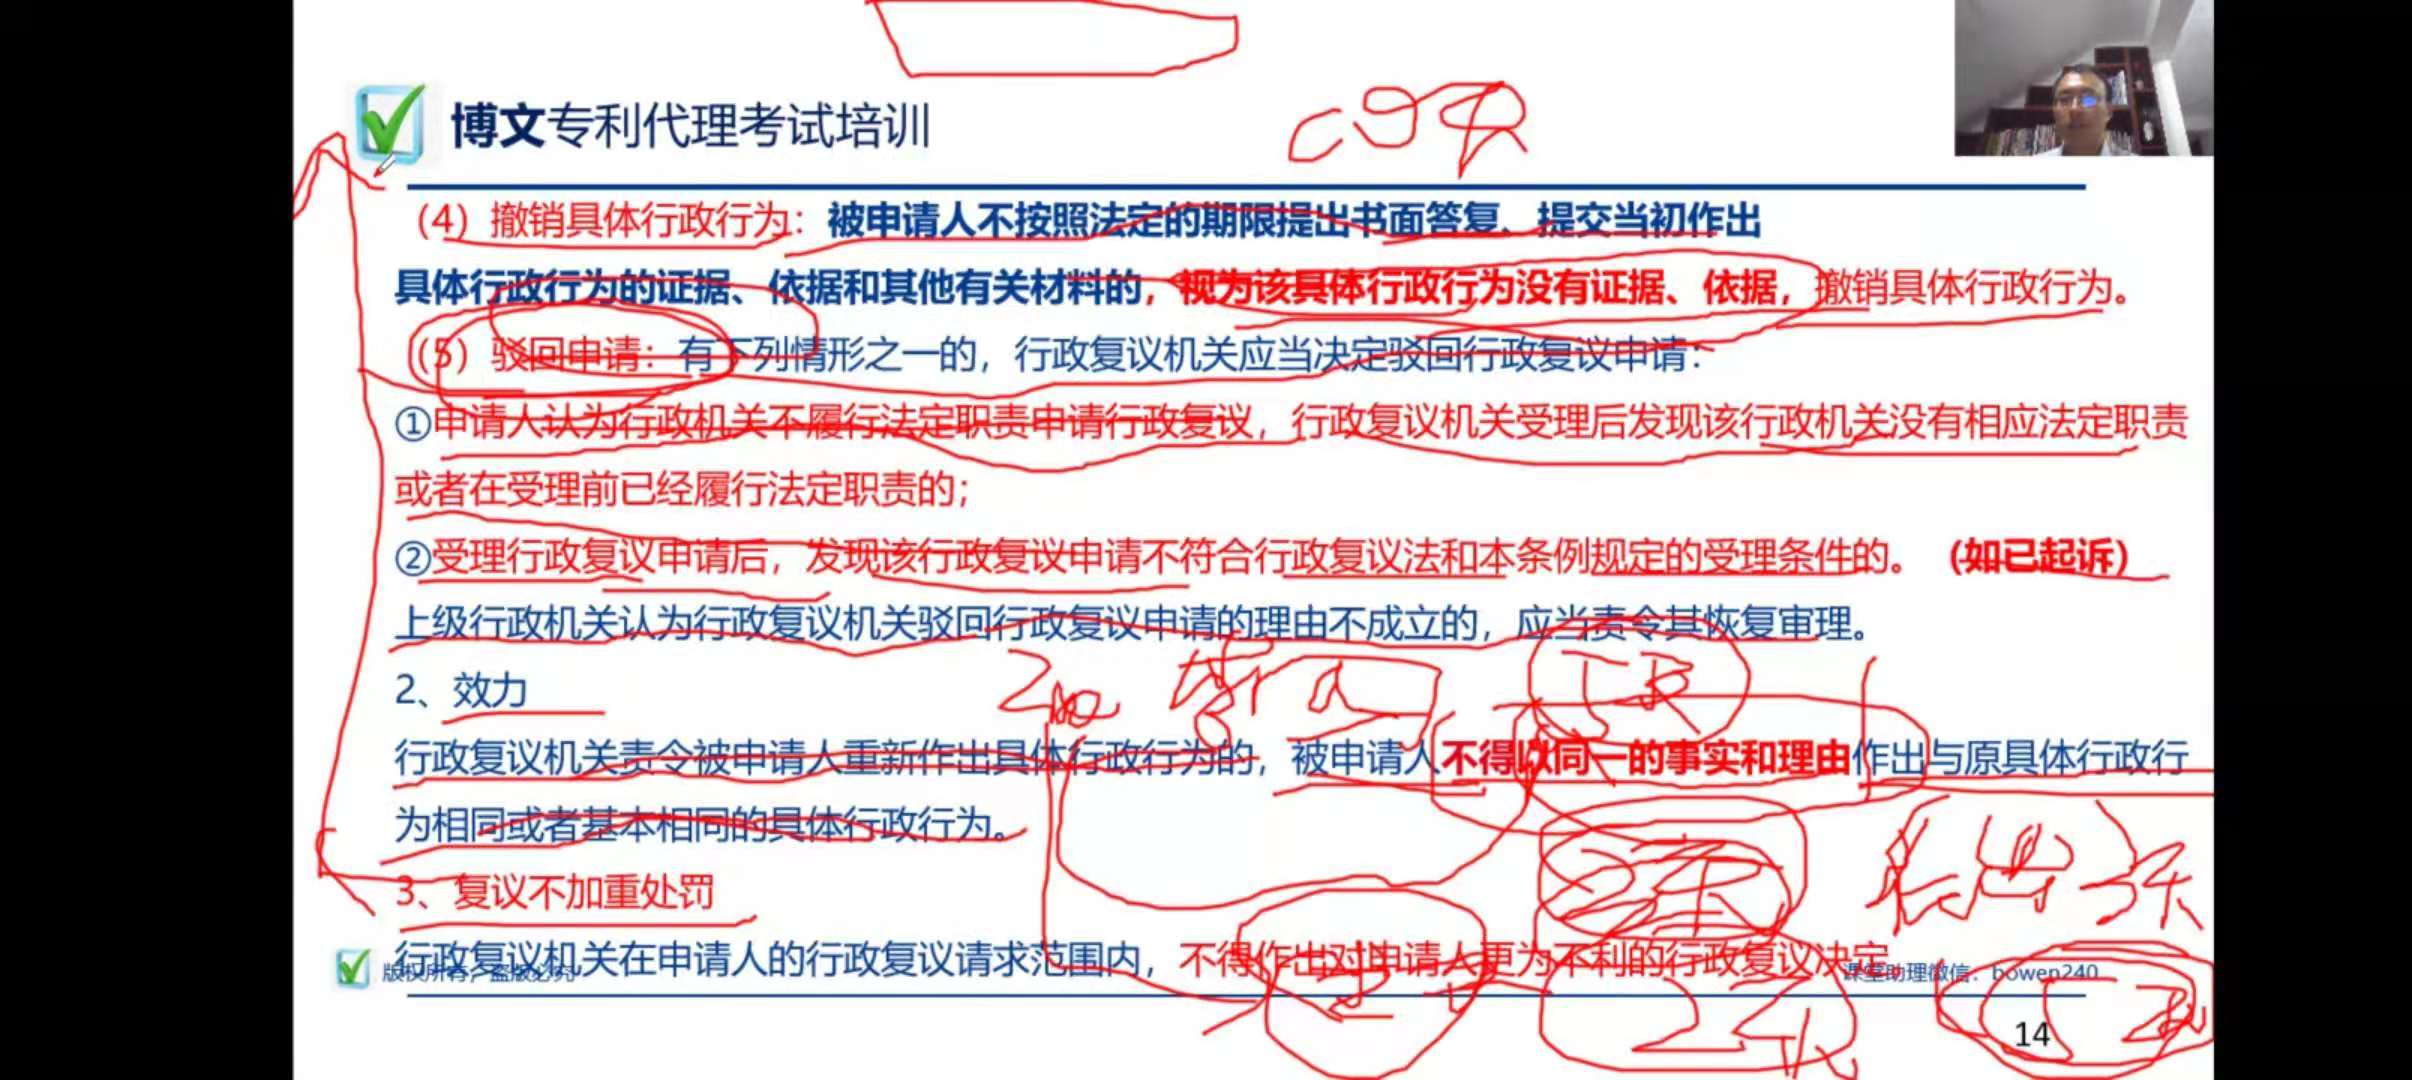 博文专利代理考试培训
（4）撤销具体行政行为：被申请人不按照法定的期限提出书面答复、提交当初作出
具体行政行为的证据、依据和其他有关材料的，视为该具体行政行为没有证据、依据，撤销具体行政行为。
（5）驳回申请：有下列情形之一的，行政复议机关应当决定驳回行政复议申请：
①申请人认为行政机关不履行法定职责申请行政复议，行政复议机关受理后发现该行政机关没有相应法定职责
或者在受理前已经履行法定职责的；
②受理行政复议申请后，发现该行政复议申请不符合行政复议法和本条例规定的受理条件的。（如已起诉）
上级行政机关认为行政复议机关驳回行政复议申请的理由不成立的，应当责令其恢复审理。
2、效力
行政复议机关责令被申请人重新作出具体行政行为的，被申请人不得以同一的事实和理由作出与原具体行政行
为相同或者基本相同的具体行政行为。
3、复议不加重处罚
行政复议机关在申请人的行政复议请求范围内，不得作出对申请人更为不利的行政复议决定。
版权所有，盗版必究
课堂助理微信：bowen240
14